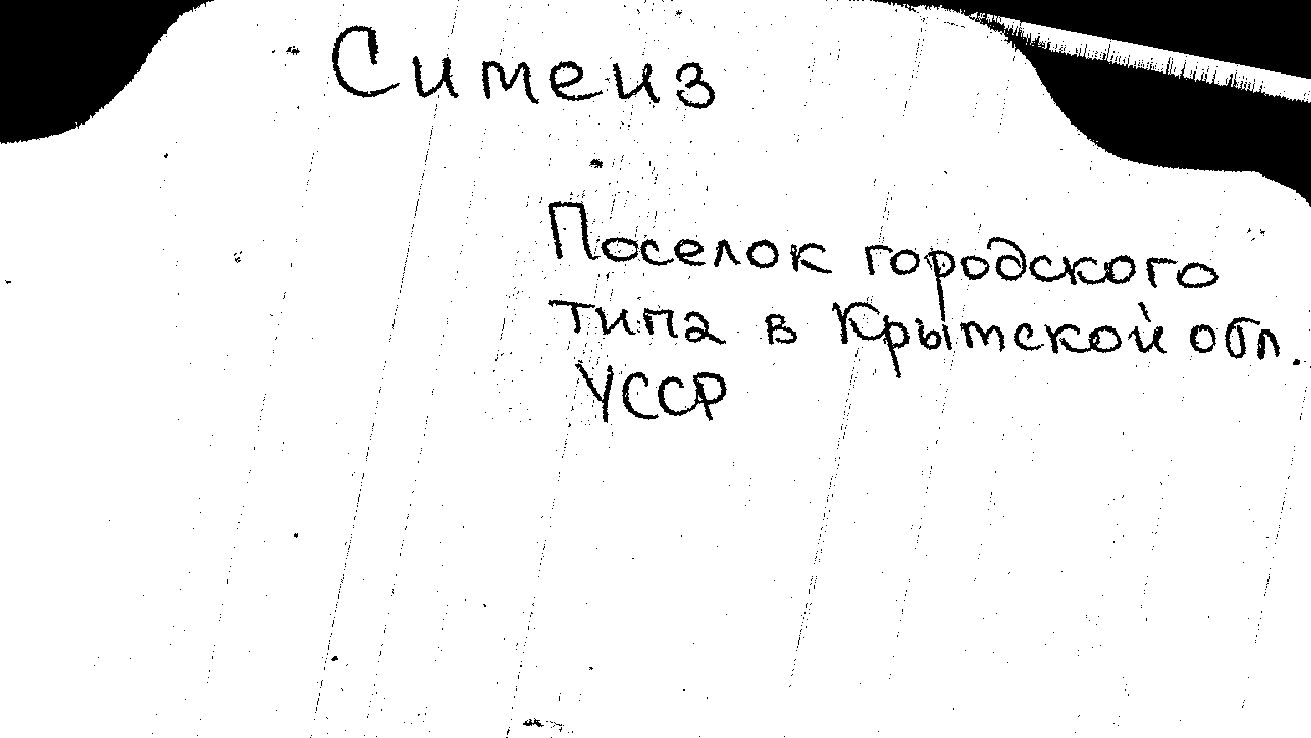 Симеиз
Поселок городского
типа в Крымской обл.
УССР